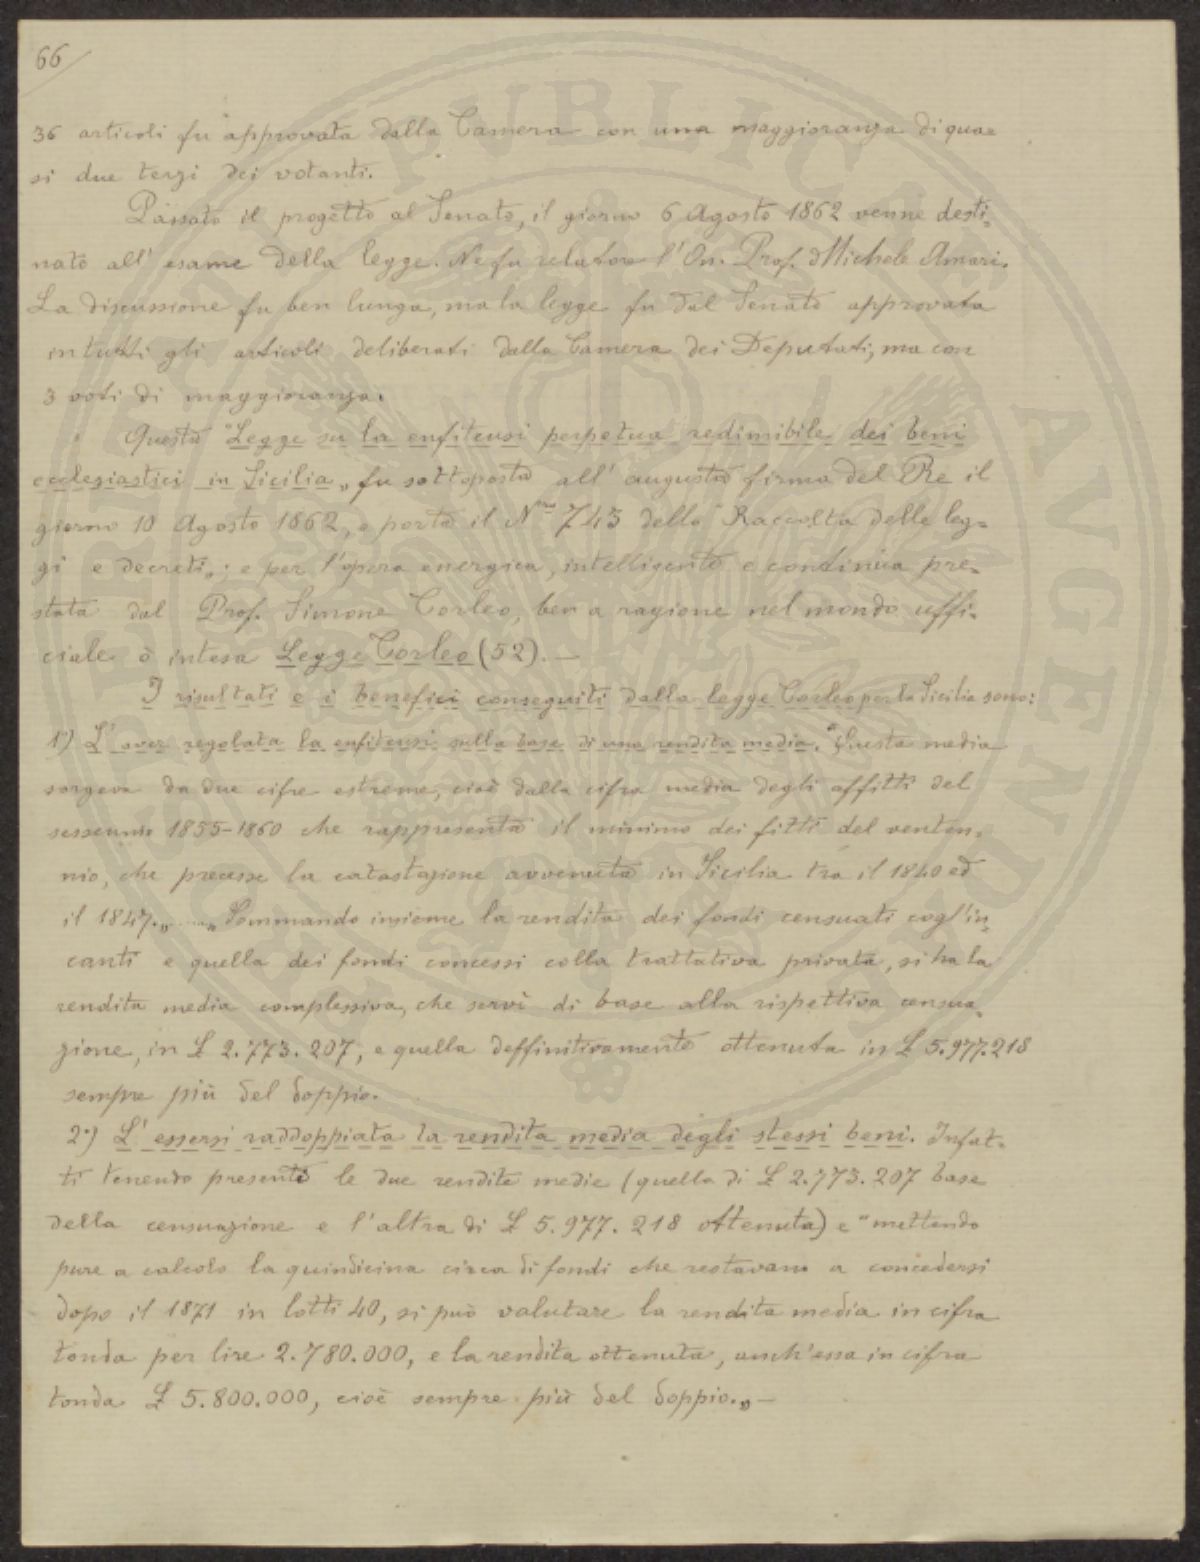 66
36 articoli fu approvata dalla Camera con una maggioranza di qua=
si due terzi dei votanti.
Passato il progetto al Senato, il giorno 6 Agosto 1862 venne desti=
nato all'esame della legge. Ne fu relatore l'On. Prof. Michele Amari.
La discussione fu ben lunga, ma la legge fu dal Senato approvata
in tutti gli articoli deliberati dalla Camera dei Deputati, ma con
3 voti di maggioranza.
Questa "Legge su la enfiteusi perpetua redimibile dei beni
ecclesiastici in Sicilia„ fu sottoposta all'augusta firma del Re il
giorno 10 Agosto 1862, e porta il Nro 743 della "Raccolta delle leg=
gi e decreti„; e per l'opera energica, intelligente e continua pre=
stata dal Prof. Simone Corleo, ben a ragione nel mondo uffi=
ciale è intesa Legge Corleo (52). —
I risultati e i benefici conseguiti dalla legge Corleo per la Sicilia sono:
1°) L'aver regolata la enfiteusi sulla base di una rendita media. "Questa media
sorgeva da due cifre estreme, cioè dalla cifra media degli affitti del
sessennio 1855-1860 che rappresenta il minimo dei fitti del venten=
nio, che precesse la catastazione avvenuta in Sicilia tra il 1840 ed
il 1847.„ ...... "Sommando insieme la rendita dei fondi censuati cogl'in=
canti e quella dei fondi concessi colla trattativa privata, si ha la
rendita media complessiva, che servì di base alla rispettiva censua=
zione, in £ 2.773.207; e quella deffinitivamente ottenuta in £ 5.977.218
sempre più del doppio.
2°) L'essersi raddoppiata la rendita media degli stessi beni. Infat=
ti tenendo presenti le due rendite medie (quella di £ 2.773.207 base
della censuazione e l'altra di £ 5.977.218 ottenuta) e "mettendo
pure a calcolo la quindicina circa di fondi che restavano a concedersi
dopo il 1871 in lotti 40, si può valutare la rendita media in cifra
tonda per lire 2.780.000, e la rendita ottenuta, anch'essa in cifra
tonda £ 5.800.000, cioè sempre più del doppio.„ —